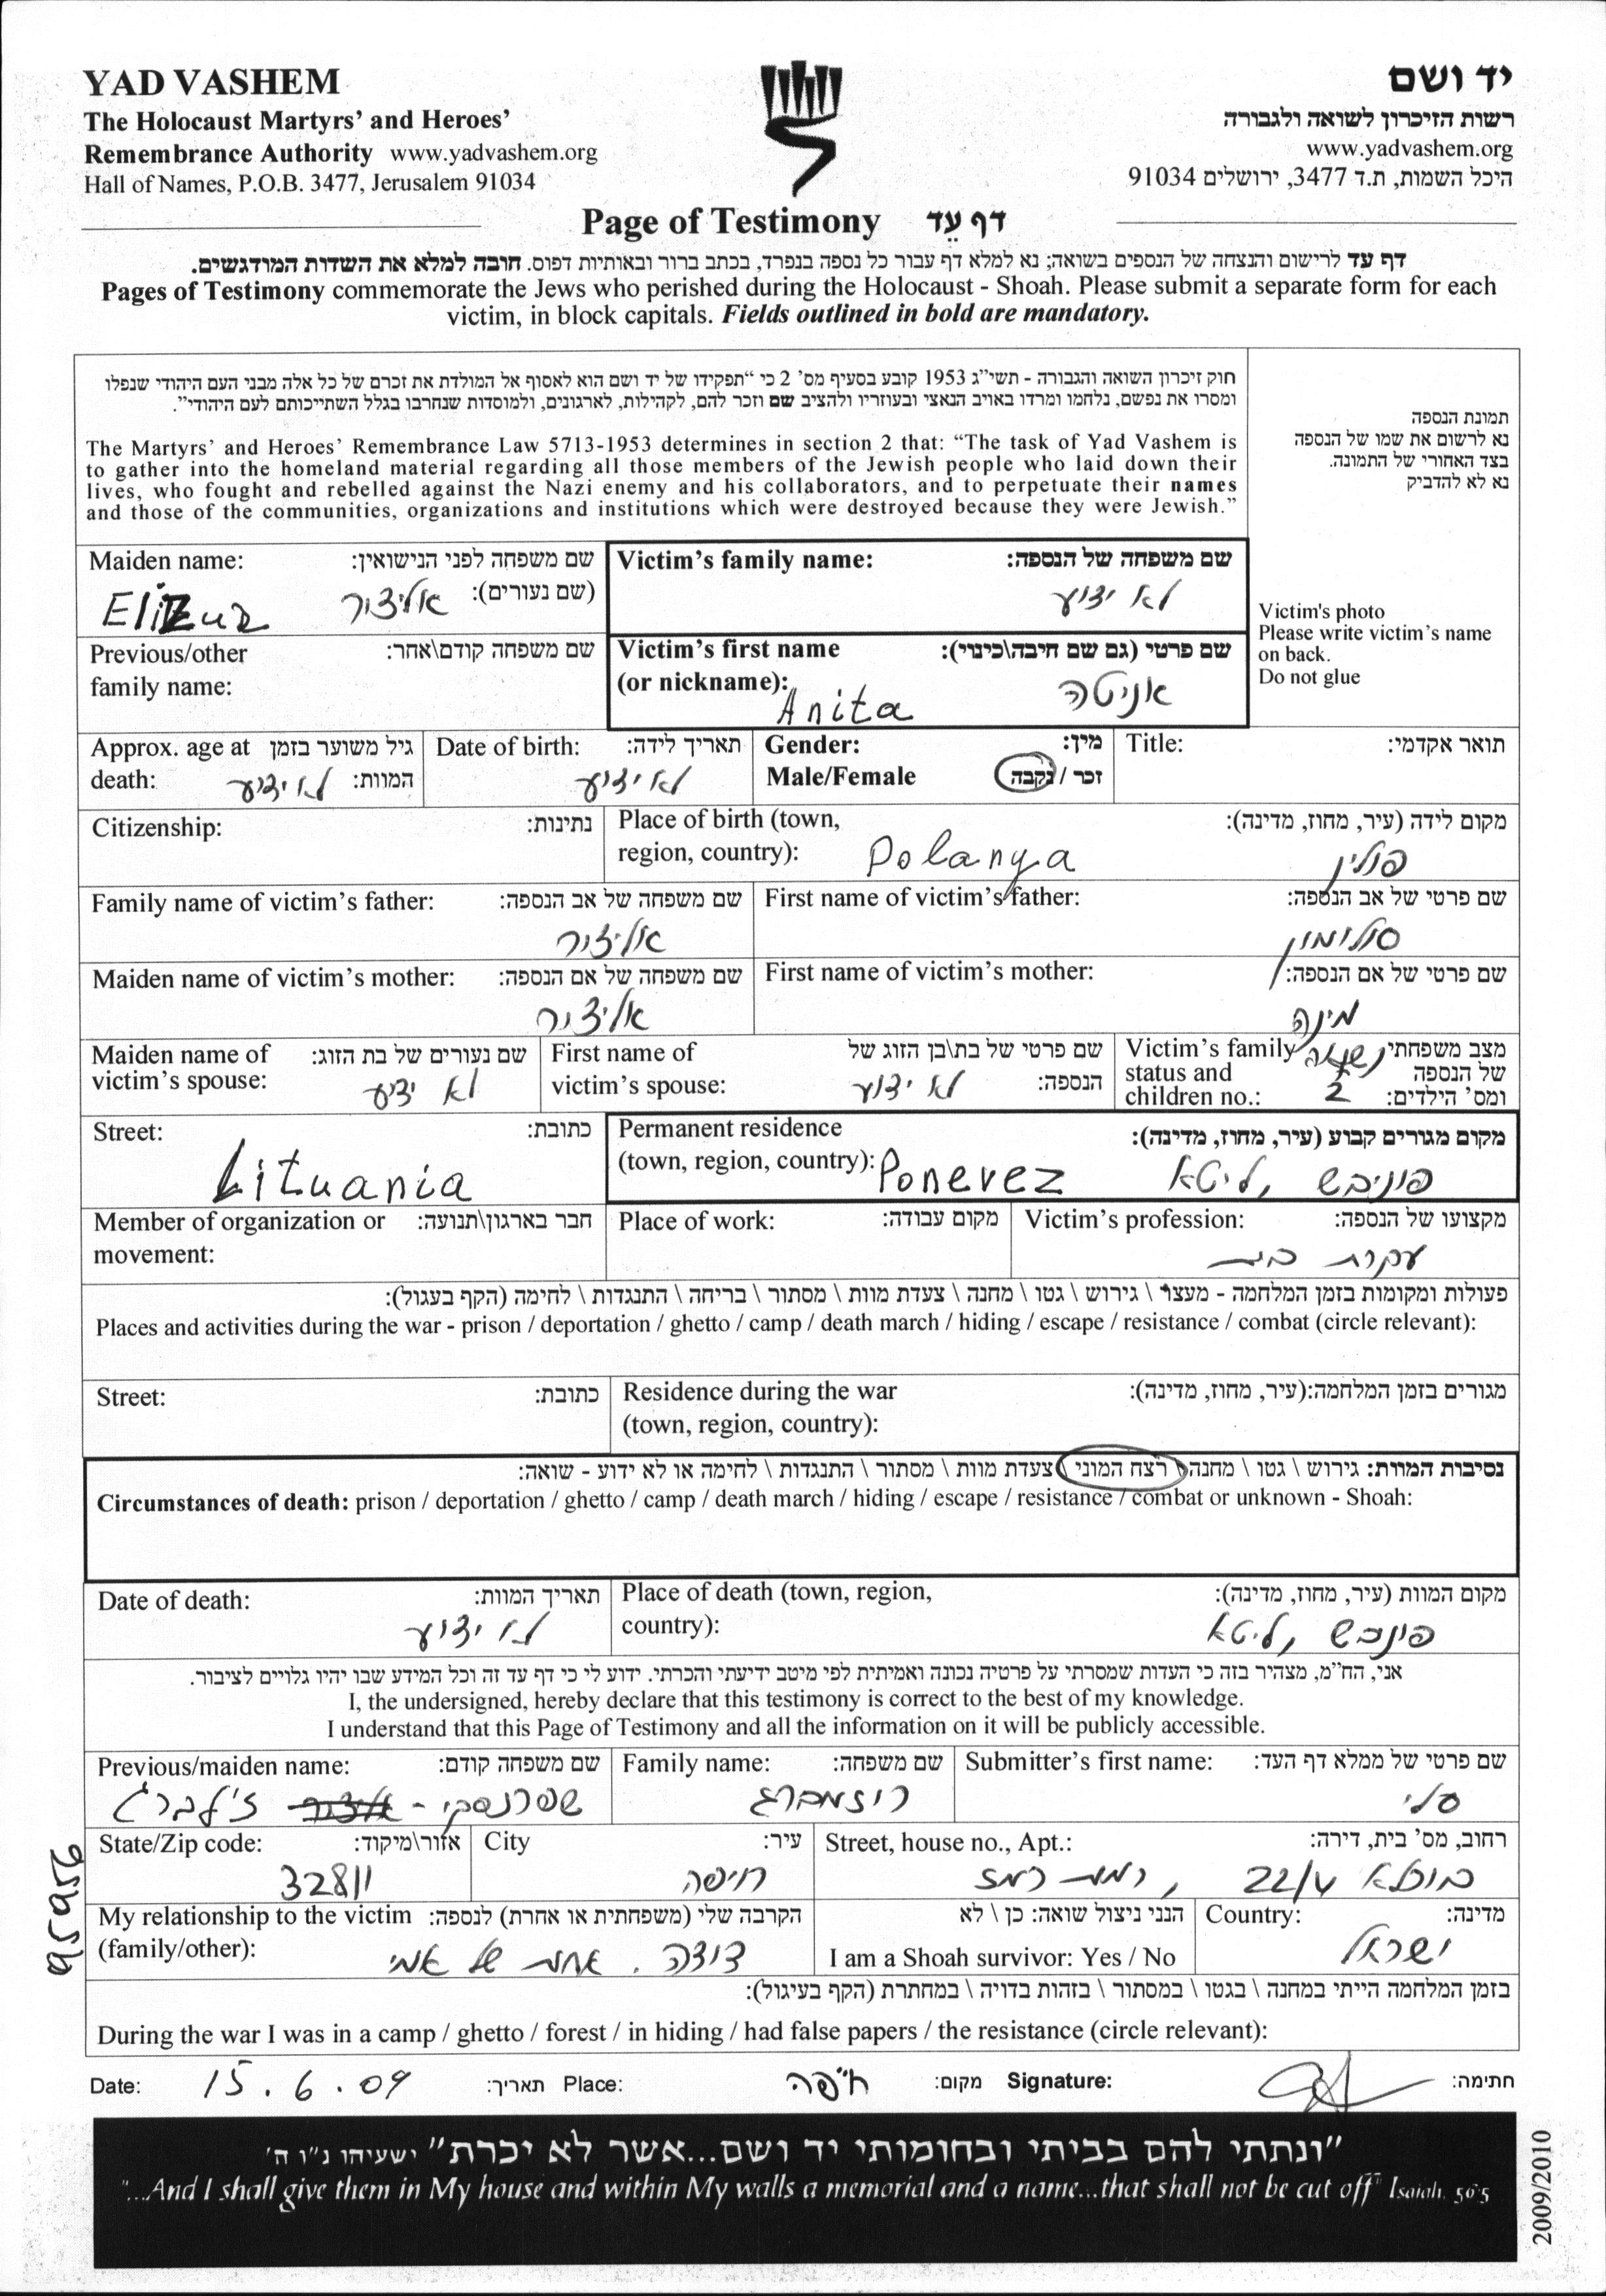 YAD VASHEM
The Holocaust Martyrs' and Heroes'
Remembrance Authority www.yadvashem.org
Hall of Names, P.O.B. 3477, Jerusalem 91034
יד ושם
רשות הזיכרון לשואה ולגבורה
www.yadvashem.org
היכל השמות, ת.ד 3477, ירושלים 91034
Page of Testimony דף עֵד
דף עד לרישום והנצחה של הנספים בשואה; נא למלא דף עבור כל נספה בנפרד, בכתב ברור ובאותיות דפוס. חובה למלא את השדות המודגשים.
Pages of Testimony commemorate the Jews who perished during the Holocaust - Shoah. Please submit a separate form for each
victim, in block capitals. Fields outlined in bold are mandatory.
חוק זיכרון השואה והגבורה - תשי"ג 1953 קובע בסעיף מס' 2 כי "תפקידו של יד ושם הוא לאסוף אל המולדת את זכרם של כל אלה מבני העם היהודי שנפלו
ומסרו את נפשם, נלחמו ומרדו באויב הנאצי ובעוזריו ולהציב שם וזכר להם, לקהילות, לארגונים, ולמוסדות שנחרבו בגלל השתייכותם לעם היהודי".
The Martyrs' and Heroes' Remembrance Law 5713-1953 determines in section 2 that: "The task of Yad Vashem is
to gather into the homeland material regarding all those members of the Jewish people who laid down their
lives, who fought and rebelled against the Nazi enemy and his collaborators, and to perpetuate their names
and those of the communities, organizations and institutions which were destroyed because they were Jewish."
תמונת הנספה
נא לרשום את שמו של הנספה
בצד האחורי של התמונה.
נא לא להדביק
Victim's photo
Please write victim's name
on back.
Do not glue
Maiden name: שם משפחה לפני הנישואין:
(שם נעורים):
Elizur אליצור
Victim's family name: שם משפחה של הנספה:
לא ידוע
Previous/other שם משפחה קודם\אחר:
family name:
Victim's first name שם פרטי (גם שם חיבה\כינוי):
(or nickname): Anita אניטה
Approx. age at גיל משוער בזמן
death: המוות: לא ידוע
Date of birth: תאריך לידה:
לא ידוע
Gender: מין:
Male/Female זכר / נקבה
Title: תואר אקדמי:
Citizenship: נתינות:
Place of birth (town, מקום לידה (עיר, מחוז, מדינה):
region, country): Polanya פולין
Family name of victim's father: שם משפחה של אב הנספה:
אליצור
First name of victim's father: שם פרטי של אב הנספה:
סולומון
Maiden name of victim's mother: שם משפחה של אם הנספה:
אליצור
First name of victim's mother: שם פרטי של אם הנספה:
מינה
Maiden name of שם נעורים של בת הזוג:
victim's spouse: לא ידוע
First name of שם פרטי של בת\בן הזוג של
victim's spouse: הנספה: לא ידוע
Victim's family מצב משפחתי נשואה
status and של הנספה
children no.: ומס' הילדים: 2
Street: כתובת:
Lituania
Permanent residence מקום מגורים קבוע (עיר, מחוז, מדינה):
(town, region, country): Ponevez פוניבש, ליטא
Member of organization or חבר בארגון\תנועה:
movement:
Place of work: מקום עבודה:
Victim's profession: מקצועו של הנספה:
עקרת בית
פעולות ומקומות בזמן המלחמה - מעצר \ גירוש \ גטו \ מחנה \ צעדת מוות \ מסתור \ בריחה \ התנגדות \ לחימה (הקף בעגול):
Places and activities during the war - prison / deportation / ghetto / camp / death march / hiding / escape / resistance / combat (circle relevant):
Street: כתובת:
Residence during the war מגורים בזמן המלחמה:(עיר, מחוז, מדינה):
(town, region, country):
נסיבות המוות: גירוש \ גטו \ מחנה \ רצח המוני \ צעדת מוות \ מסתור \ התנגדות \ לחימה או לא ידוע - שואה:
Circumstances of death: prison / deportation / ghetto / camp / death march / hiding / escape / resistance / combat or unknown - Shoah:
Date of death: תאריך המוות:
לא ידוע
Place of death (town, region, מקום המוות (עיר, מחוז, מדינה):
country): פונבש, ליטא
אני, הח"מ, מצהיר בזה כי העדות שמסרתי על פרטיה נכונה ואמיתית לפי מיטב ידיעתי והכרתי. ידוע לי כי דף עד זה וכל המידע שבו יהיו גלויים לציבור.
I, the undersigned, hereby declare that this testimony is correct to the best of my knowledge.
I understand that this Page of Testimony and all the information on it will be publicly accessible.
Previous/maiden name: שם משפחה קודם:
Family name: שם משפחה:
רוזמברג
Submitter's first name: שם פרטי של ממלא דף העד:
סלי
State/Zip code: אזור\מיקוד:
32811
City עיר:
חיפה
Street, house no., Apt.: רחוב, מס' בית, דירה:
22/4, רמת רמז
My relationship to the victim הקרבה שלי (משפחתית או אחרת) לנספה:
(family/other): דודה. אחות של אמי
הנני ניצול שואה: כן \ לא
I am a Shoah survivor: Yes / No
Country: מדינה:
ישראל
בזמן המלחמה הייתי במחנה \ בגטו \ במסתור \ בזהות בדויה \ במחתרת (הקף בעיגול):
During the war I was in a camp / ghetto / forest / in hiding / had false papers / the resistance (circle relevant):
Date: 15.6.09 תאריך: Place: חיפה מקום: Signature: חתימה:
"ונתתי להם בביתי ובחומותי יד ושם...אשר לא יכרת" ישעיהו נ"ו ה'
"...And I shall give them in My house and within My walls a memorial and a name...that shall not be cut off" Isaiah, 56:5
95956
2009/2010